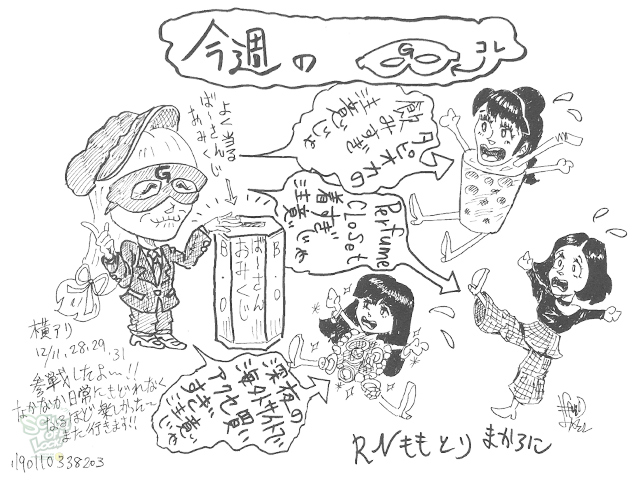 今週の G コレ
よく当る
ばーさんじ
おみくじ
タピオカの
飲みすぎ
注意じゃ
Perfume
Closet
着すぎ
注意じゃ
G
B
ばーさん
おみくじ
深夜の
海外サイトで
アクセ買い
すぎ注意じゃ
横アリ
12/11,28,29,31
参戦したよ〜!!
なかなか日常にもどれなく
なるほど楽しかった〜
また行きます!!
RNももとり まかろに
1190110338203